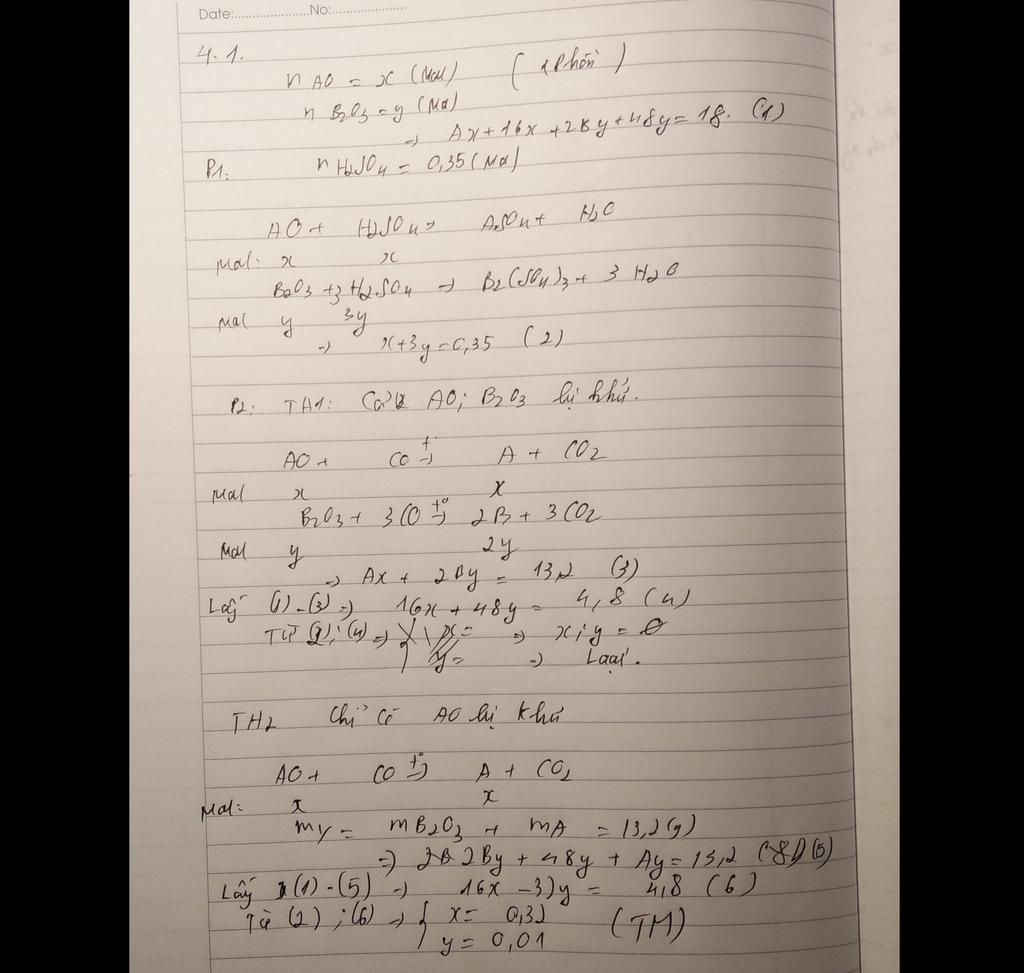 Date:...................No:...................
4.1.
n AO = x (mol) ( 1 Phần )
n B2O3 = y (mol)
=> Ax + 16x + 2By + 48y = 18. (1)
P1: n H2SO4 = 0,35 (mol)
AO + H2SO4 -> ASO4 + H2O
mol: x x
B2O3 + 3 H2SO4 -> B2(SO4)3 + 3 H2O
mol y 3y
-> x + 3y = 0,35 (2)
P2: TH1: Cả 2 AO; B2O3 bị khử.
AO + CO t -> A + CO2
mol x x
B2O3 + 3CO t° -> 2B + 3CO2
mol y 2y
=> Ax + 2By = 13,2 (3)
Lấy (1) - (3) => 16x + 48y = 4,8 (4)
Từ (2); (4) => { x = => x; y = 0
y = -> Loại.
TH2 Chỉ có AO bị khử
AO + CO t° -> A + CO2
mol: x x
mY = mB2O3 + mA = 13,2 (g)
=> 2By + 48y + Ay = 13,2 (5)
Lấy (1) - (5) => 16x = 4,8 (6)
Từ (2); (6) => { x = 0,32 (TM)
y = 0,01